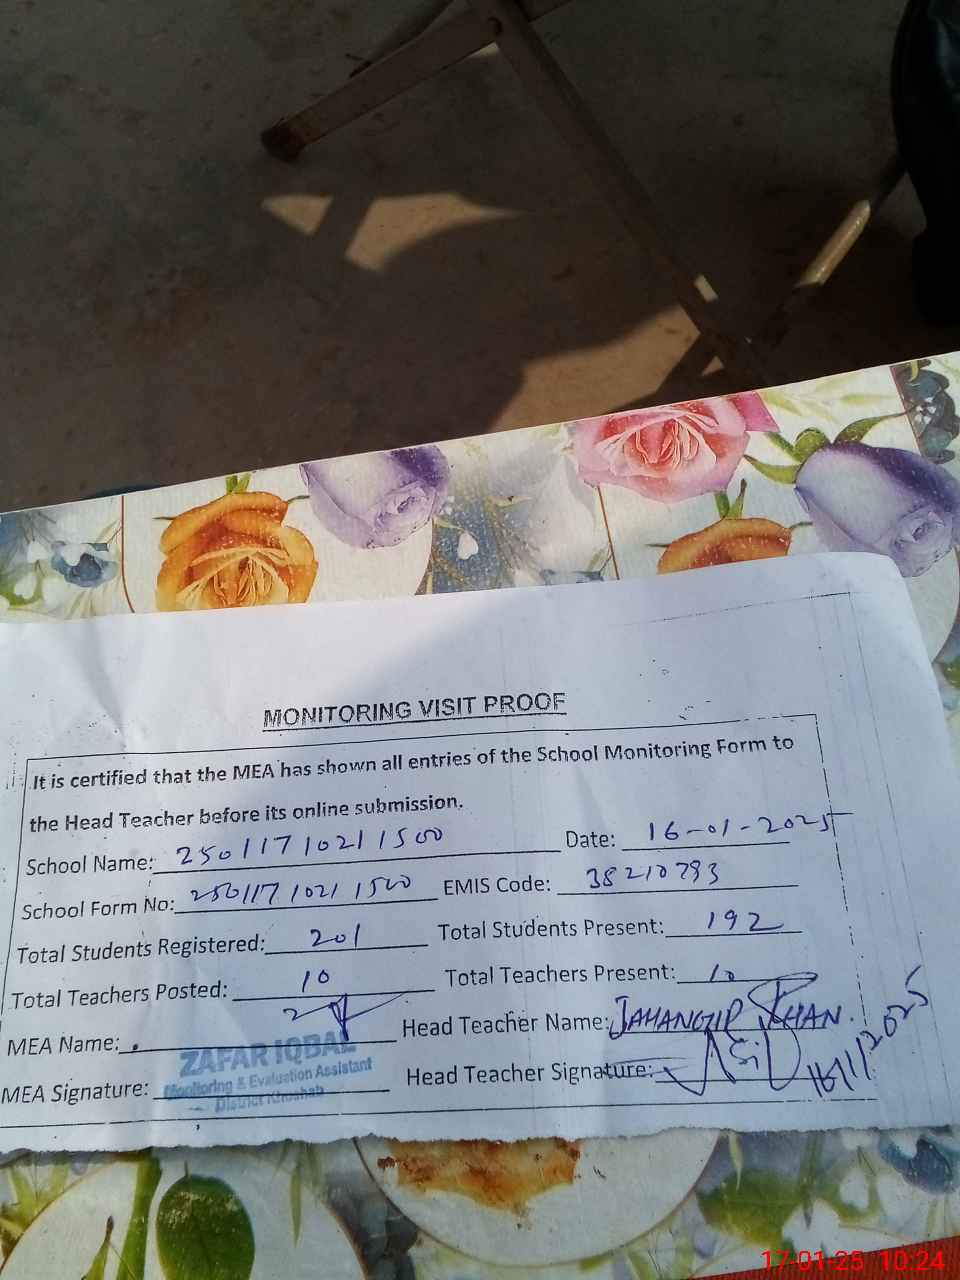 MONITORING VISIT PROOF
It is certified that the MEA has shown all entries of the School Monitoring Form to
the Head Teacher before its online submission.
School Name: 25011710211500 Date: 16-01-2025
School Form No: 25011710211500 EMIS Code: 38210793
Total Students Registered: 201 Total Students Present: 192
Total Teachers Posted: 10 Total Teachers Present: 10
MEA Name: Head Teacher Name: JAHANGIR KHAN.
ZAFAR IQBAL
Monitoring & Evaluation Assistant
District Khushab
MEA Signature: Head Teacher Signature: 16/1/2025
17-01-25 10:24